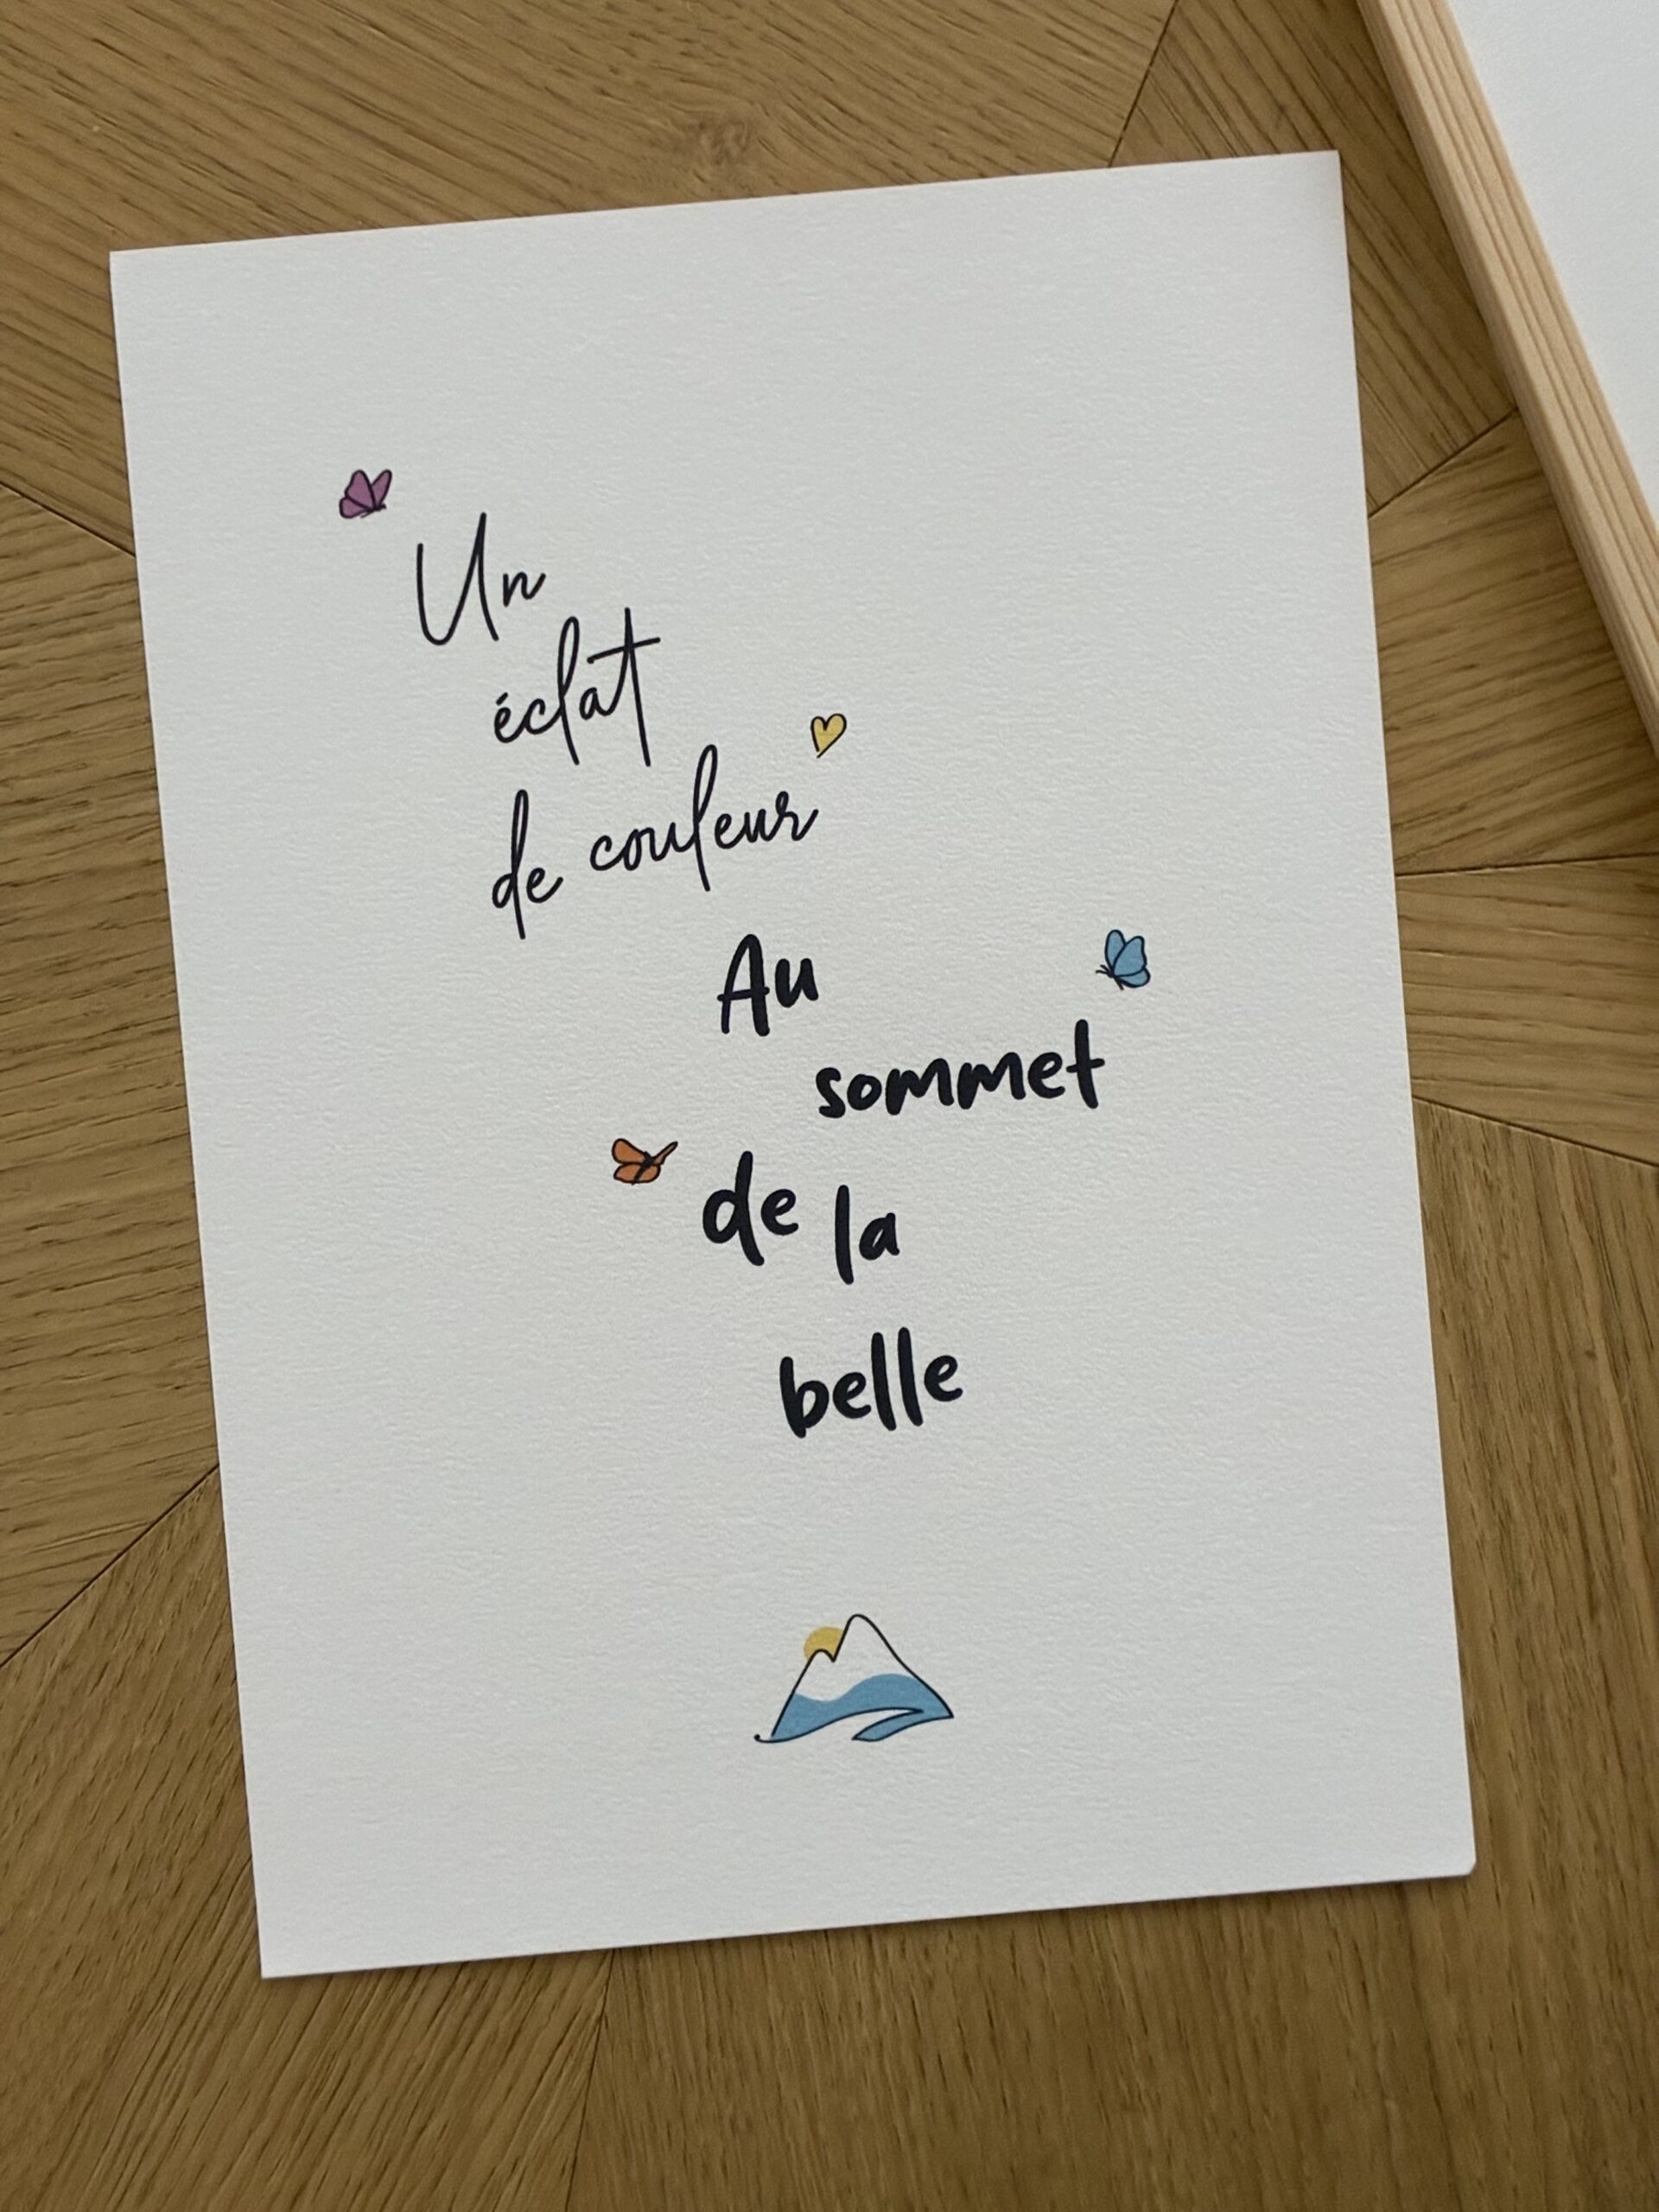 Un
éclat
de couleur
Au
sommet
de la
belle